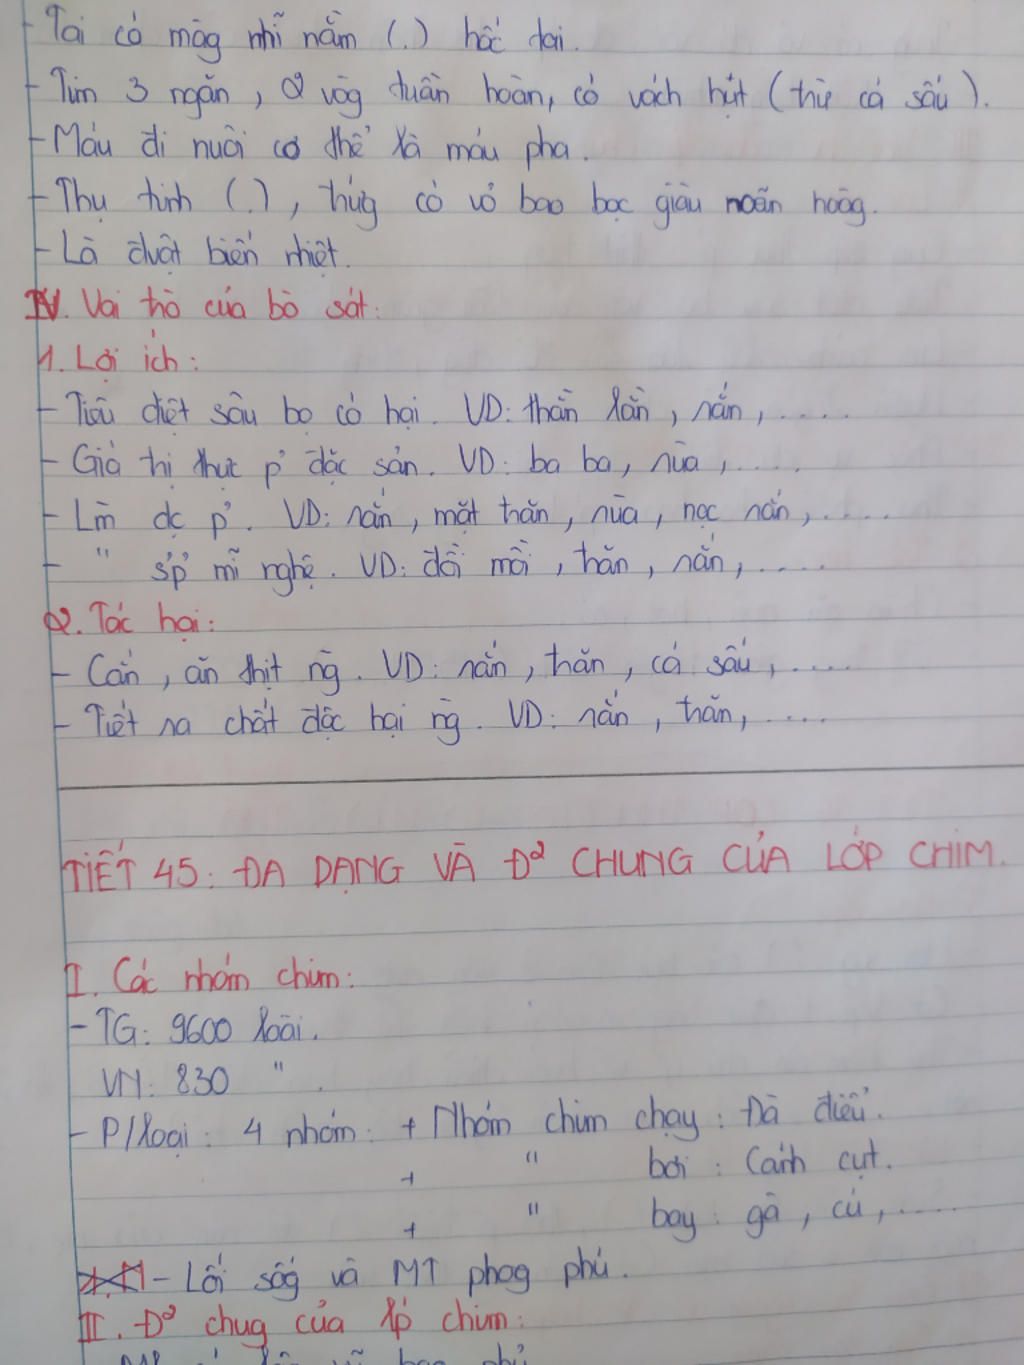 - Tai có màg nhĩ nằm (.) hốc tai.
- Tim 3 ngăn, 2 vòg tuần hoàn, có vách hụt (trừ cá sấu).
- Máu đi nuôi cơ thể là máu pha.
- Thụ tinh (.), trứg có vỏ bao bọc giàu noãn hoàg.
- Là đvật biến nhiệt.
IV. Vai trò của bò sát:
1. Lợi ích:
- Tiêu diệt sâu bọ có hại. VD: thằn lằn, rắn, ....
- Giá trị thực p² đặc sản. VD: ba ba, rùa, ....
- Lm̀ dc p². VD: rắn, mật trăn, rùa, nọc rắn, ....
- " s²p² mĩ nghệ. VD: đồi mồi, trăn, rắn, ....
2. Tác hại:
- Cắn, ăn thịt ng̀. VD: rắn, trăn, cá sấu, ....
- Tiết ra chất độc hại ng̀. VD: rắn, trăn, ....
TIẾT 45: ĐA DẠNG VÀ Đ² CHUNG CỦA LỚP CHIM.
I. Các nhóm chim:
- TG: 9600 loài.
VN: 830 " .
- P/loại: 4 nhóm: + Nhóm chim chạy: Đà điểu.
+ " bơi: Cánh cụt.
+ " bay: gà, cú, ....
- Lối sốg và MT phog phú.
II. Đ² chug của lớp chim: